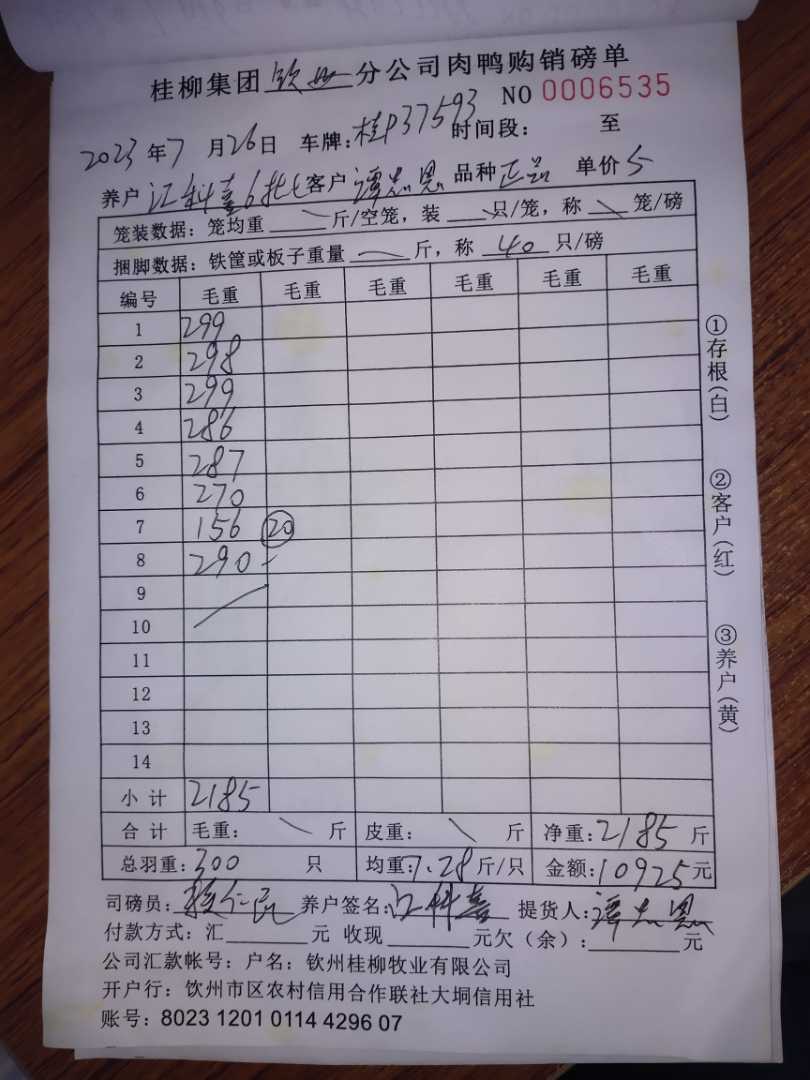 桂柳集团 钦州 分公司肉鸭购销磅单
NO 0006535
2023年7月26日 车牌:桂P37593 时间段: 至
养户 江科喜6批 客户 谭志恩 品种 正品 单价 5
笼装数据:笼均重 \ 斤/空笼,装 \ 只/笼,称 \ 笼/磅
捆脚数据:铁筐或板子重量 — 斤,称 40 只/磅
编号 毛重 毛重 毛重 毛重 毛重 毛重
1 299
2 298
3 299
4 286
5 287
6 270
7 156 20
8 290
9
10
11
12
13
14
小计 2185
合计 毛重: \ 斤 皮重: \ 斤 净重:2185 斤
总羽重:300 只 均重:7.28 斤/只 金额:10925 元
司磅员: 养户签名:江科喜 提货人:谭志恩
付款方式:汇 元 收现 元欠(余): 元
公司汇款帐号:户名:钦州桂柳牧业有限公司
开户行:钦州市区农村信用合作联社大垌信用社
账号:8023 1201 0114 4296 07
①存根(白)
②客户(红)
③养户(黄)